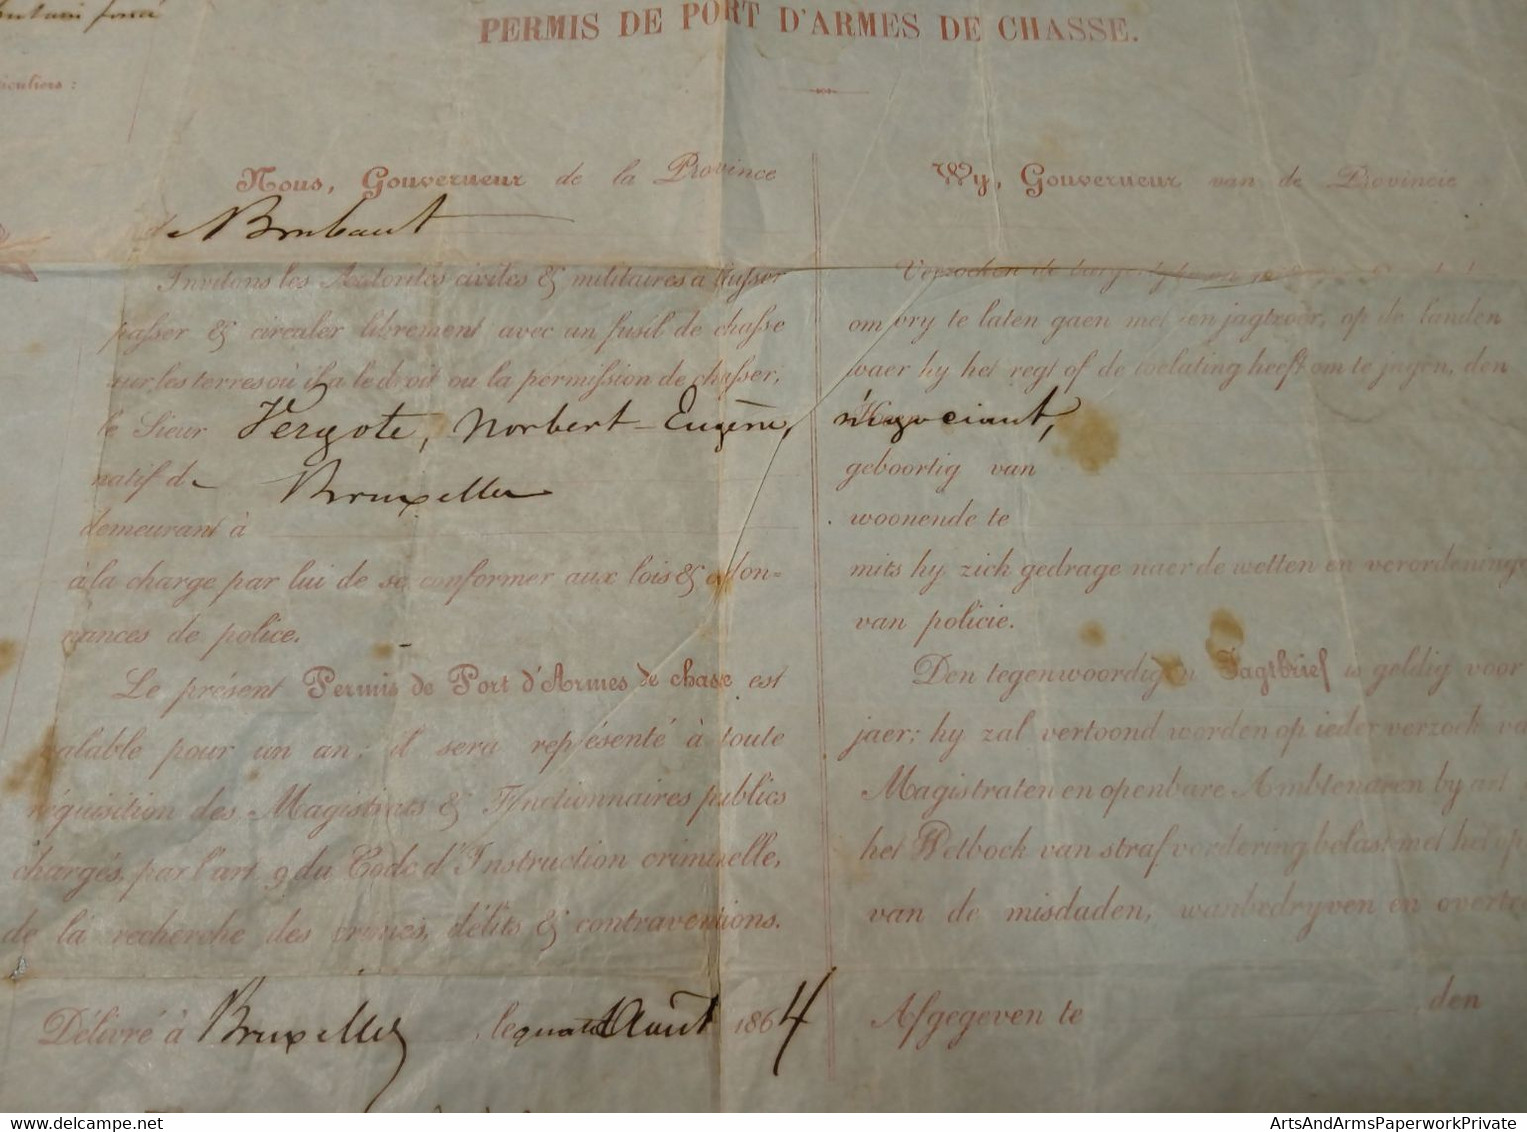 PERMIS DE PORT D'ARMES DE CHASSE.
iculiers :
Nous, Gouverneur de la Province
de Brabant
Invitons les Autorités civiles & militaires à laisser
passer & circuler librement avec un fusil de chasse
sur les terres où il a le droit ou la permission de chasser,
le Sieur Vergote, Norbert-Eugène, négociant,
natif de Bruxelles
demeurant à
à la charge par lui de se conformer aux lois & ordon-
nances de police.
Le présent Permis de Port d'Armes de chasse est
valable pour un an; il sera représenté à toute
réquisition des Magistrats & Fonctionnaires publics
chargés, par l'art. 9 du Code d'Instruction criminelle,
de la recherche des crimes, délits & contraventions.
Délivré à Bruxelles, le quatre Août 1864
Wy, Gouverneur van de Provincie
Verzoeken de burgerlyke en
om vry te laten gaen met een jagtroer, op de landen
waer hy het regt of de toelating heeft om te jagen, den
geboortig van
woonende te
mits hy zich gedrage naer de wetten en verordeninge
van policie.
Den tegenwoordigen Jagtbrief is geldig voor
jaer; hy zal vertoond worden op ieder verzoek va
Magistraten en openbare Ambtenaren by art.
het Wetboek van strafvordering belast met het op
van de misdaden, wanbedryven en overtre
Afgegeven te , den
delcampe.net
ArtsAndArmsPaperworkPrivate